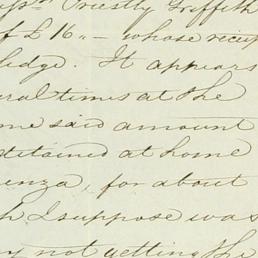 Priestly Griffith
of £ 16 „ – whose receip
ledge. It appears
eral times at the
me said amount
detained at home
enza, for about
h I suppose was
y not getting the